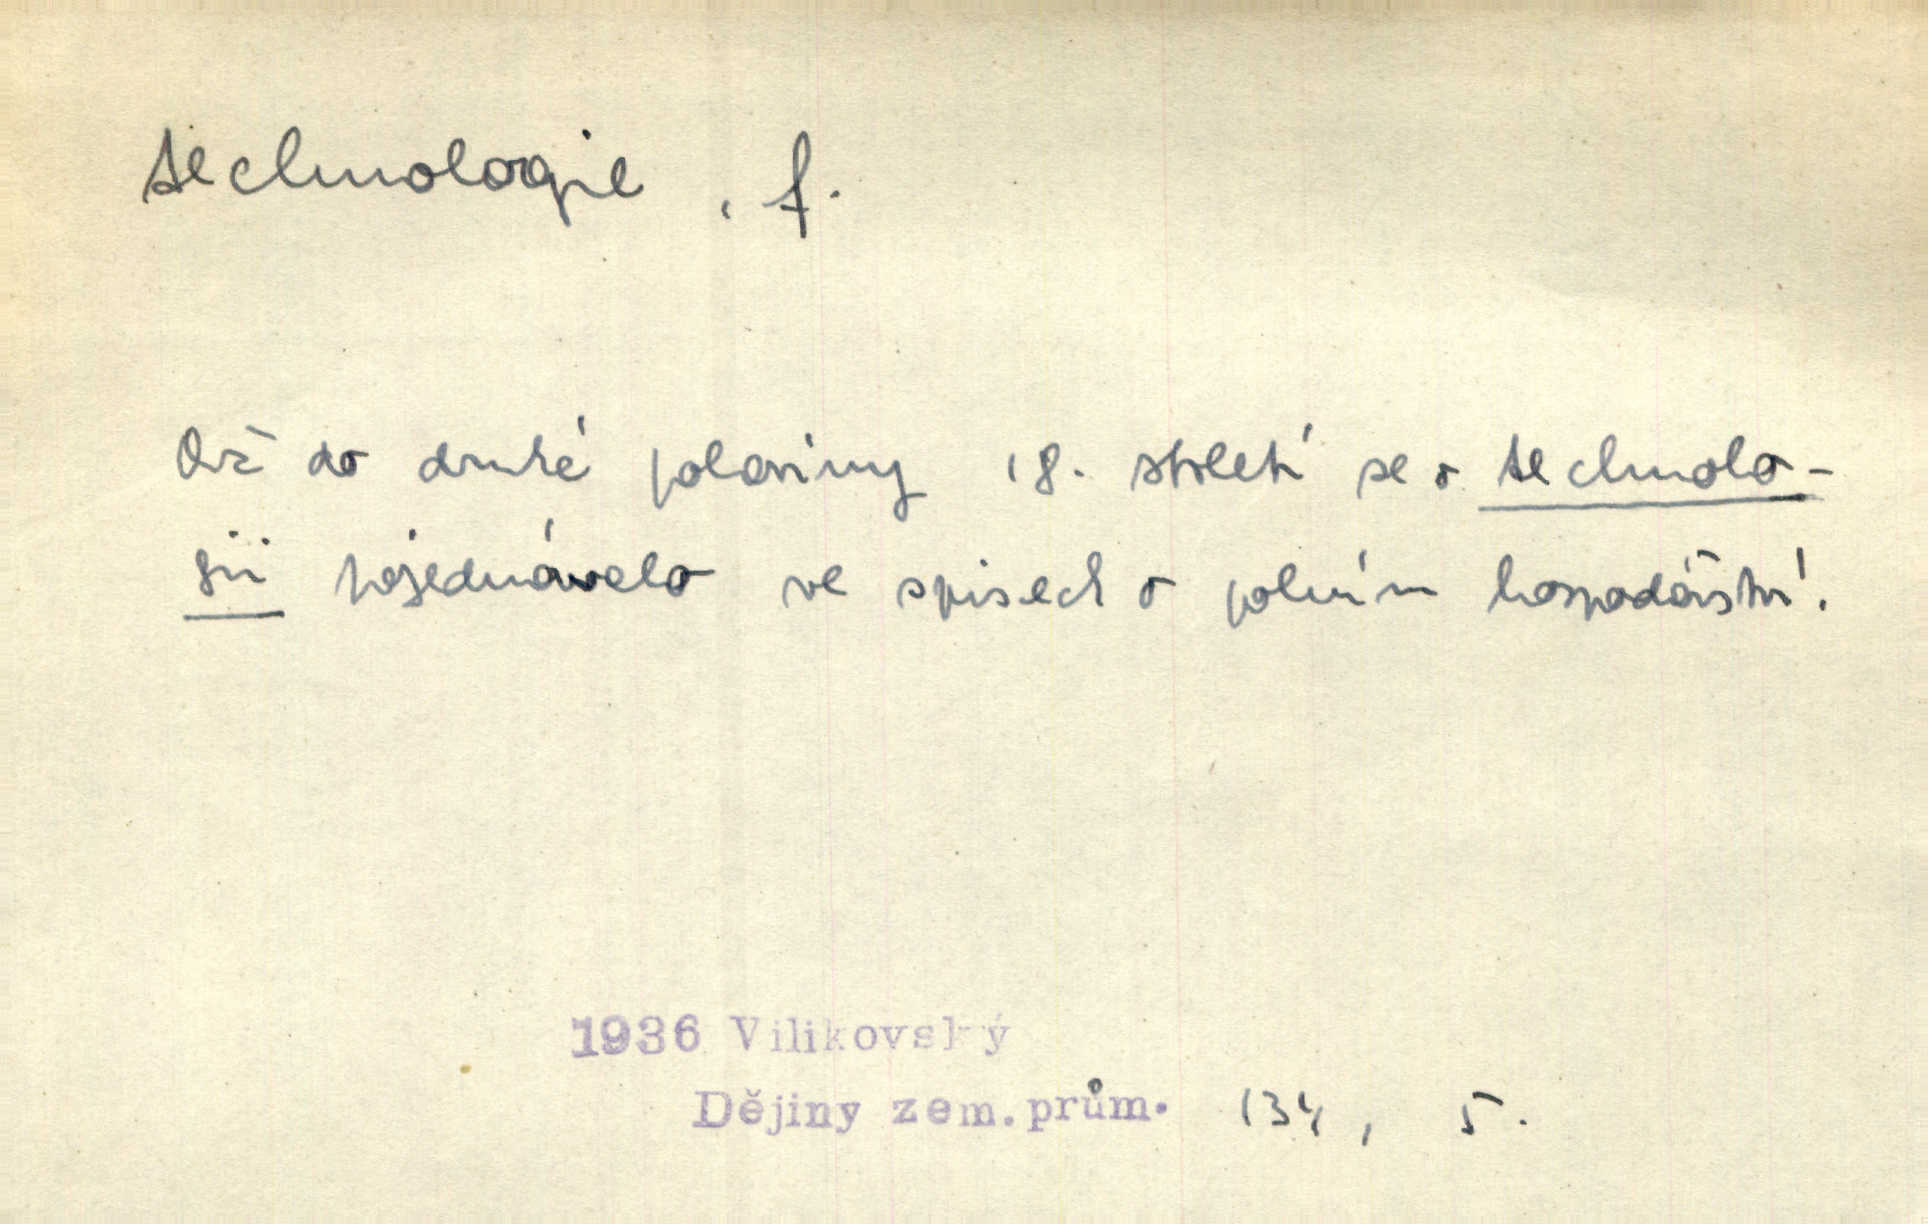 technologie, f.
Až do druhé poloviny 18. století se o technolo-
gii pojednávalo ve spisech o polním hospodářství.
1936 Vilikovský
Dějiny zem. prům. 134, 5.